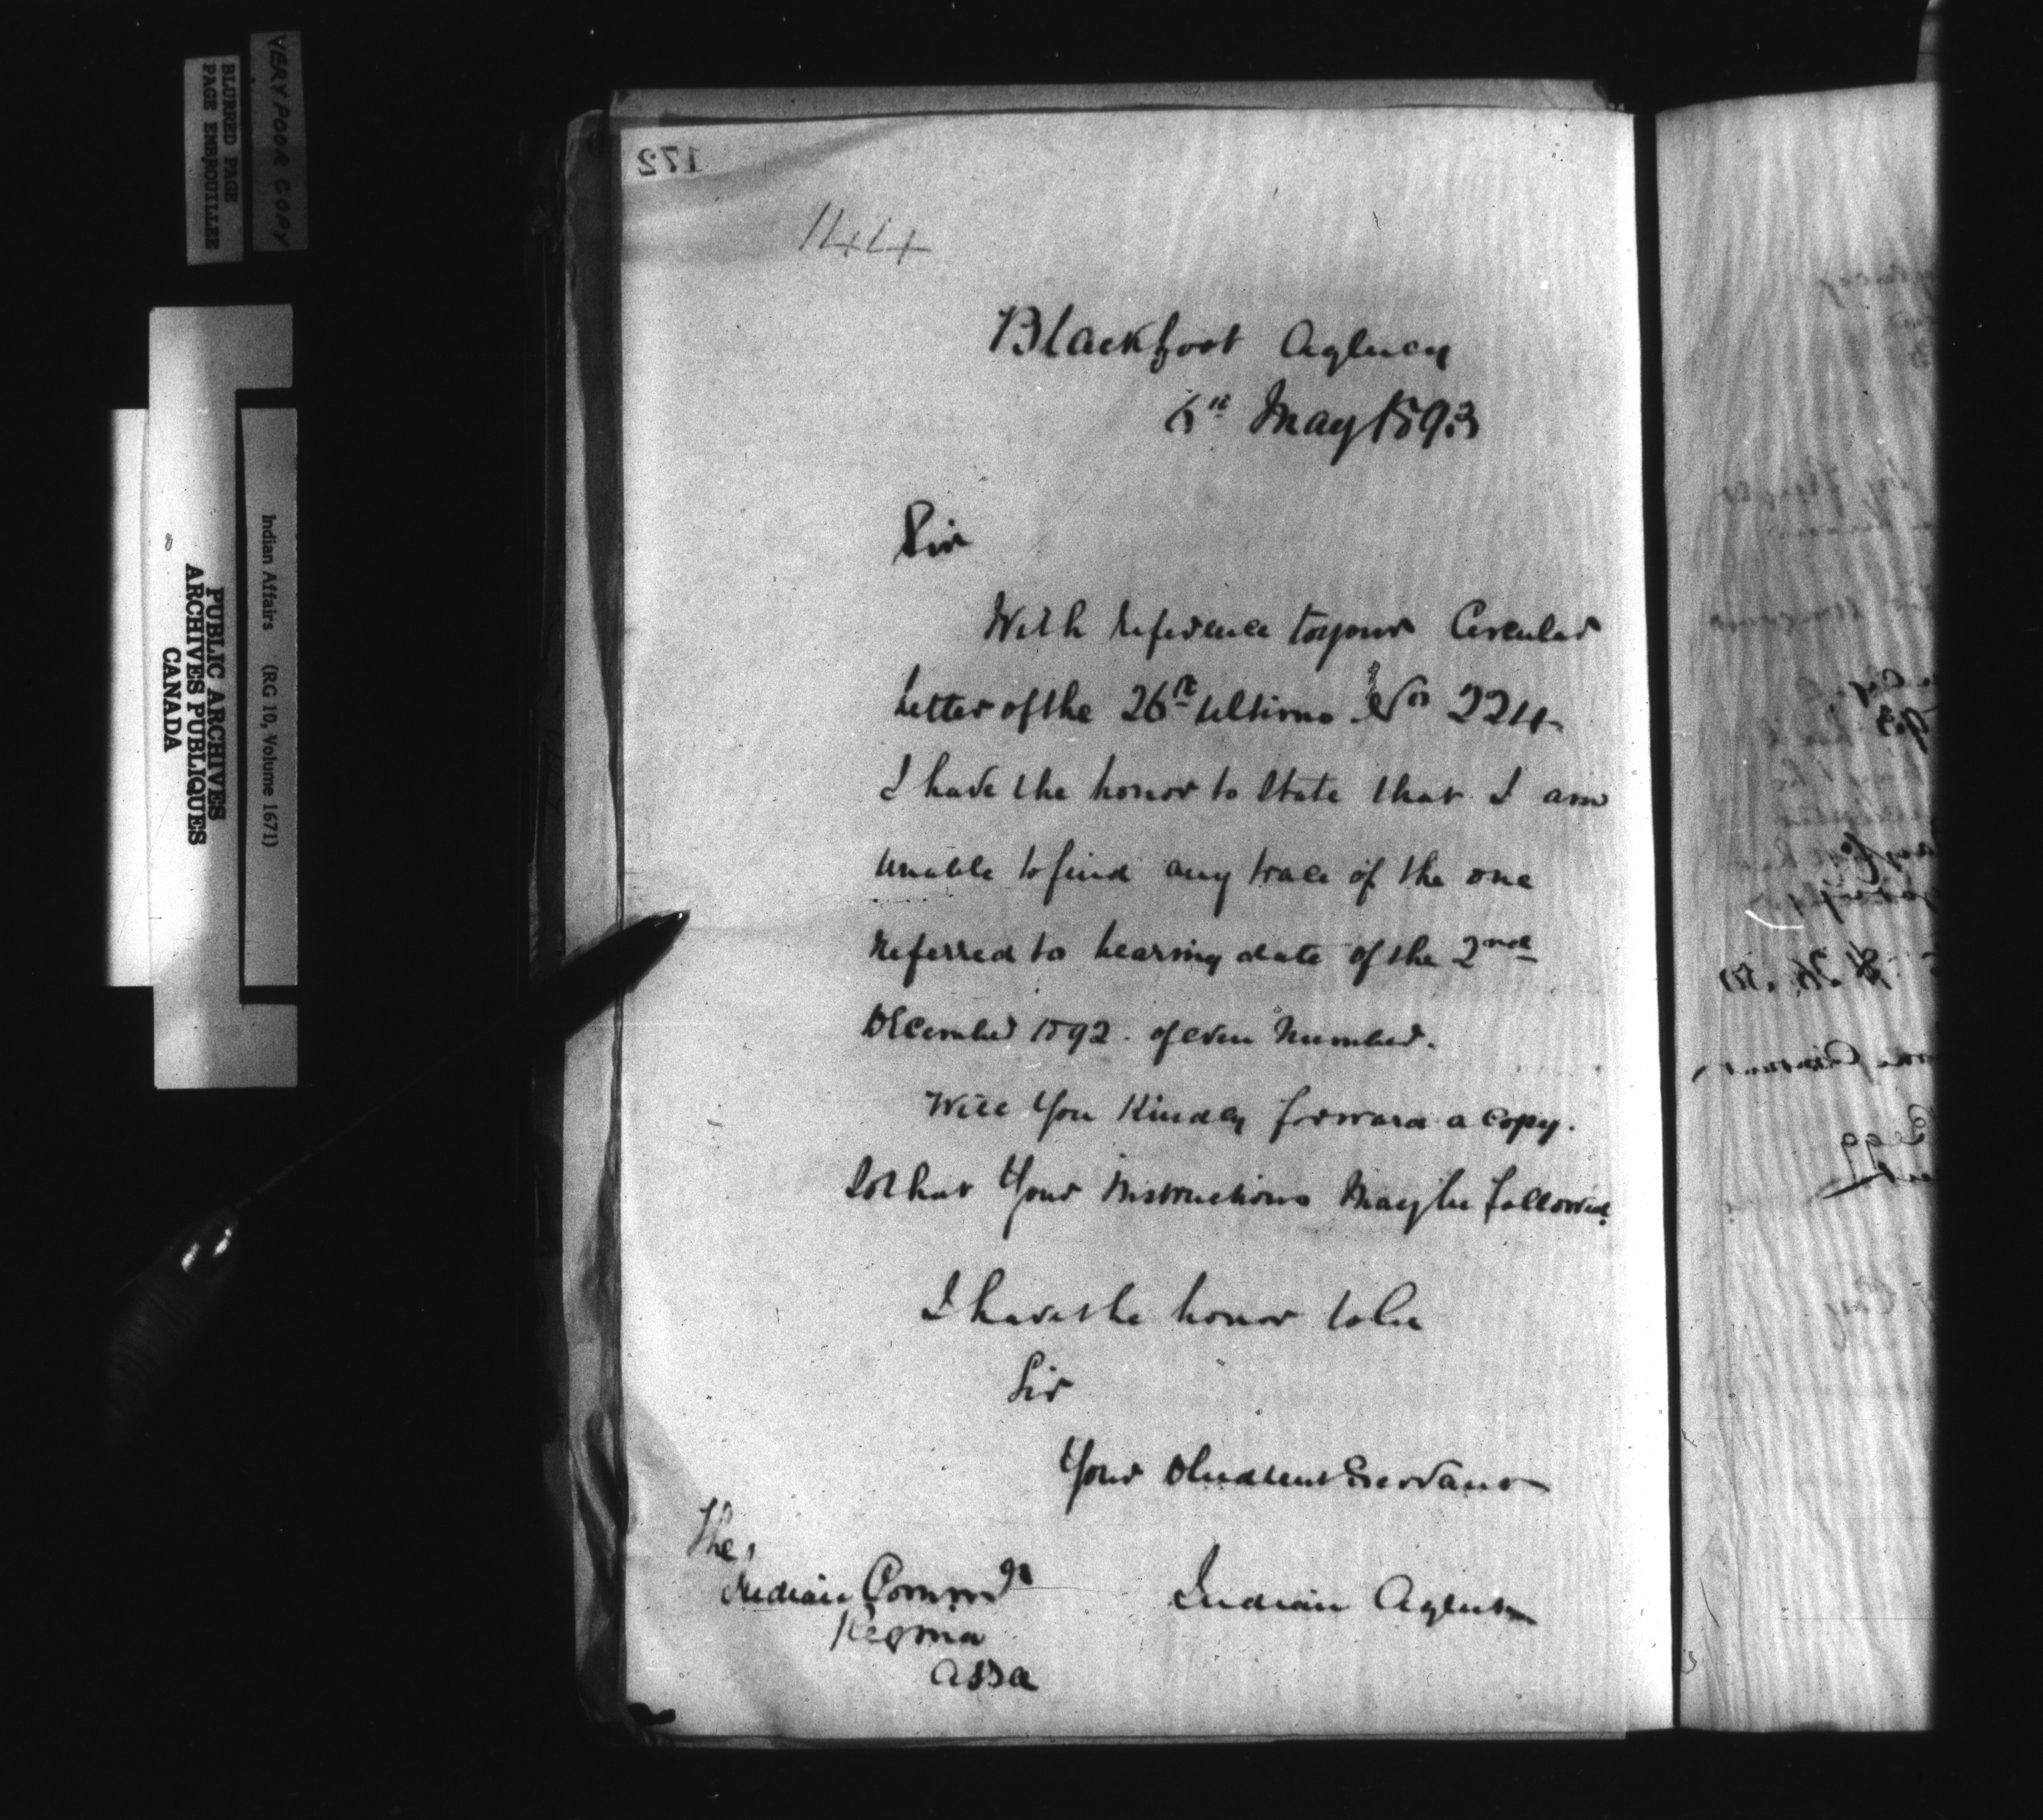 VERY POOR COPY
BLURRED PAGE
PAGE EMBROUILLEE
Indian Affairs (RG 10, Volume 1671)
PUBLIC ARCHIVES
ARCHIVES PUBLIQUES
CANADA
172
144
Blackfoot Agency
May 1893
Sir
With reference to your Circular
Letter of the 26th ultimo No 224
I have the honor to State that I am
unable to find any trace of the one
referred to bearing date of the 2nd
December 1892. of even Number.
Will You Kindly forward a copy.
So that Your Instructions May be followed.
I have the honor to be
Sir
Your Obedient Servant
The
Indian Commr
Regina
Assa
Indian Agent